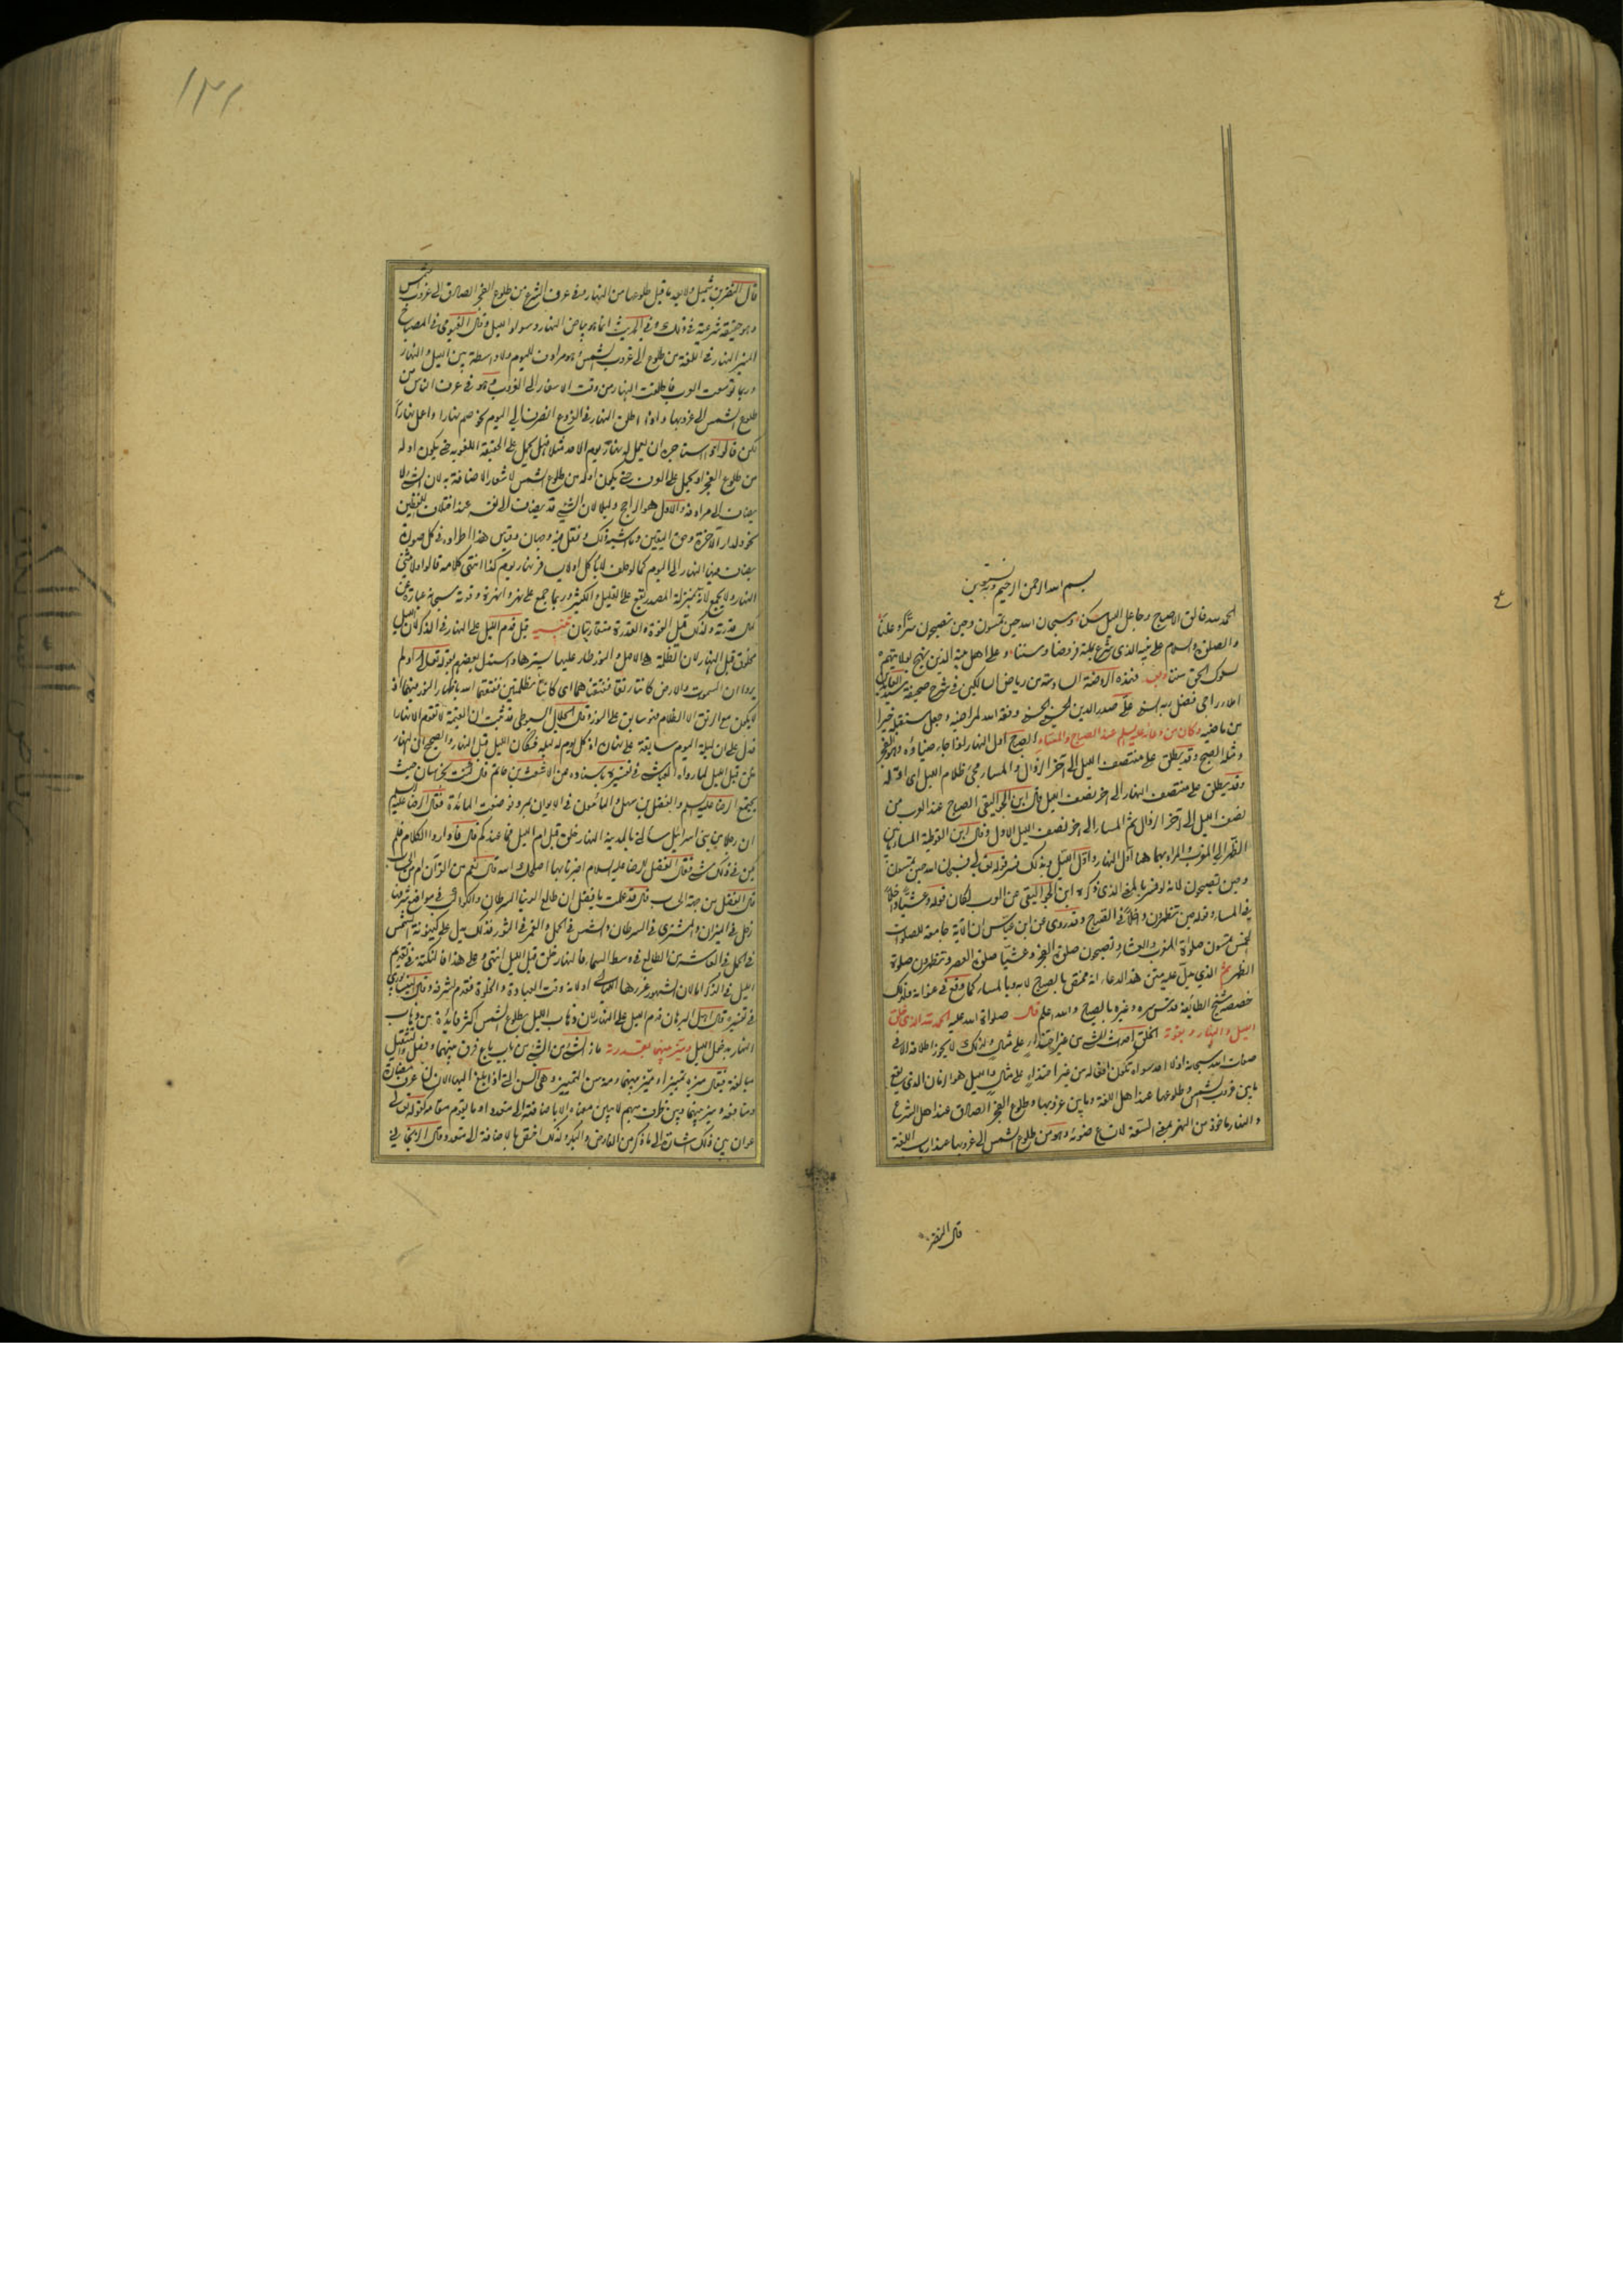 بسم الله الرحمن الرحيم وبه نستعين
الحمد لله فالق الاصباح وجاعل الليل سكنا وسبحان الله حين تمسون وحين تصبحون سرا وعلنا
والصلوة والسلام على نبيه الذى شرع بملته فروضا وسننا وعلى اهل بيته الذين بنهج لولايتهم
سلوك الحق سننا وبعد فهذه الروضة السادسة من رياض السالكين فى شرح صحيفة سيد العابدين
املاء راجى فضل ربه السنى على صدر الدين الحسينى الحسنى وفقه الله لمراضيه وجعل مستقبله خيرا
من ماضيه وكان من دعائه عليه السلم عند الصباح والمساء الصبح اول النهار
ومثله الصبح وقد يطلق على منتصف الليل الى آخر الزوال والمساء مجئ ظلام الليل
وقد يطلق على منتصف النهار الى اخر نصف الليل قال ابن الجواليقى الصباح عند العرب من
نصف الليل الى آخر الزوال ثم المساء الى اخر نصف الليل الاول وقال ابن القوطية المساء ما بين
الظهر الى المغرب والمراد بهما هنا اول النهار واول الليل وبذلك فسر قوله تعالى فسبحان الله حين تمسون
وحين تصبحون لانه لو فسر بالمعنى الذى ذكره ابن الجواليقى عن العرب لكان قوله وعشيا داخلا
فى المساء وقوله حين تظهرون داخلا فى الصبح وقد روى عن ابن عباس ان الآية جامعة للصلوات
الخمس تمسون صلوة المغرب والعشاء وتصبحون صلوة الفجر وعشيا صلوة العصر وتظهرون صلوة
الظهر ثم الذى يدل عليه متن هذا الدعاء انه مختص بالصباح لا به وبالمساء كما وقع فى عنوانه ولذلك
خصصه شيخ الطائفة قدس سره وغيره بالصباح والله اعلم قال صلواة الله عليه الحمد لله الذى خلق
الليل والنهار بقوته الخلق احداث الشئ من غير احتذاء على مثال ولذلك لا يجوز اطلاقه الا فى
صفات الله سبحانه اذ لا احد سواه تكون افعاله من غير احتذاء على مثال والليل هو الزمان الذى يقع
ما بين غروب الشمس وطلوعها عند اهل اللغة وما بين غروبها وطلوع الفجر الصادق عند اهل الشرع
والنهار ماخوذ من النهر بمعنى السعة لاتساع ضوئه وهو من طلوع الشمس الى غروبها عند ارباب اللغة
قال النضر
١٣١
قال النضر بن شميل ولا يعد ما قبل طلوعها من النهار وفى عرف الشرع من طلوع الفجر الصادق الى غروب الشمس
وهو حقيقة شرعية فى ذلك وفى الحديث انما هو بياض النهار وسواد الليل وقال الفيومى فى المصباح
المنير النهار فى اللغة من طلوع الى غروب الشمس وهو مرادف لليوم ولا واسطة بين الليل والنهار
وربما توسعت العرب فاطلقت النهار من وقت الاسفار الى الغروب وهو فى عرف الناس من
طلوع الشمس الى غروبها واذا اطلق النهار فى الفروع انصرف الى اليوم نحو صم نهارا واعمل نهارا
لكن قالوا اذا استاجره ان يعمل له نهار يوم الاحد مثلا فهل يحمل على الحقيقة اللغوية حتى يكون اوله
من طلوع الفجر او يحمل على العرف حتى يكون اوله من طلوع الشمس لاشعار الاضافة به لان الشئ لا
يضاف الى مرادفه والاول هو الراجح دليلا لان الشئ قد يضاف الى نفسه عند اختلاف اللفظين
نحو ولدار الآخرة وحق اليقين وما اشبه ذلك ونقل فيه وجهان وقياس هذا اطراده فى كل صورة
يضاف فيها النهار الى اليوم كما لو حلف لا ياكل او لا يسافر نهار يوم كذا انتهى كلامه قالوا ولا يثنى
النهار ولا يجمع لانه بمنزلة المصدر يقع على القليل والكثير وربما جمع على نهر وانهرة وقوته سبحانه عبارة عن
كمال قدرته ولذلك قيل القوة والقدرة متقاربتان تنبيه قيل قدم الليل على النهار فى الذكر لان الليل
مخلوق قبل النهار لان الظلمة هى الاصل والنور طار عليها يسترها واستدل بعضهم بقوله تعالى اولم
يروا ان السموت والارض كانتا رتقا ففتقناهما اى كانتا مظلمتين ففتقهما الله باظهار النور فيهما اذ
لا يكون مع الرتق الا الظلام فهو سابق على النور وقال الجلال السيوطى قد ثبت ان القيمة لا تقوم الا نهارا
فدل على ان ليلة اليوم سابقة عليه اذ كل يوم له ليلة فكان الليل قبل النهار والصحيح ان النهار
خلق قبل الليل لما رواه العياشى فى تفسيره باسناده عن الاشعث بن حاتم قال كنت بخراسان حيث
اجتمع الرضا عليه السلم والفضل بن سهل والمأمون فى الايوان بمرو فوضعت المائدة فقال الرضا عليه السلم
ان رجلا من بنى اسرائيل سألنى بالمدينة النهار خلق قبل ام الليل فما عندكم قال فاداروا الكلام فلم
يكن فى ذلك شئ فقال الفضل للرضا عليه السلام اخبرنا بها اصلحك الله قال نعم من القرآن ام من الحساب
قال الفضل من جهة الحساب قال قد علمت يا فضل ان طالع الدنيا السرطان والكواكب فى مواضع شرفها
زحل فى الميزان والمشترى فى السرطان والشمس فى الحمل والقمر فى الثور فذلك يدل على كينونة الشمس
فى الحمل فى العاشر من الطالع فى وسط السماء فالنهار خلق قبل الليل انتهى وعلى هذا فالنكتة فى تقديم
الليل فى الذكر اما لان الشهور غررها الليالى او لانه وقت العبادة والخلوة فقدم لشرفه وقال النيسابورى
فى تفسيره قال اهل البرهان قدم الليل على النهار لان ذهاب الليل بطلوع الشمس اكثر فايدة من ذهاب
النهار بدخول الليل وميز بينهما بقدرته ماز الشئ من الشئ من باب باع فرق بينهما وفصل والتثقيل
مبالغة فيقال ميزه تمييزا وميز بينهما